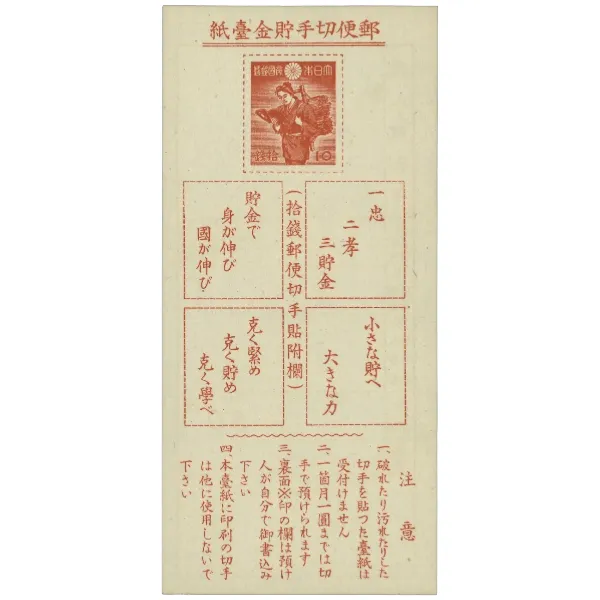 紙臺金貯手切便郵
便郵國帝本日大
錢拾
10
一忠
二孝
三貯金
小さな貯へ
大きな力
(拾錢郵便切手貼附欄)
貯金で
身が伸び
國が伸び
克く緊め
克く貯め
克く學べ
注意
一、破れたり汚れたりした
切手を貼つた臺紙は
受付けません
二、一箇月一圓までは切
手で預けられます
三、裏面※印の欄は預け
人が自分で御書込み
下さい
四、本臺紙に印刷の切手
は他に使用しないで
下さい